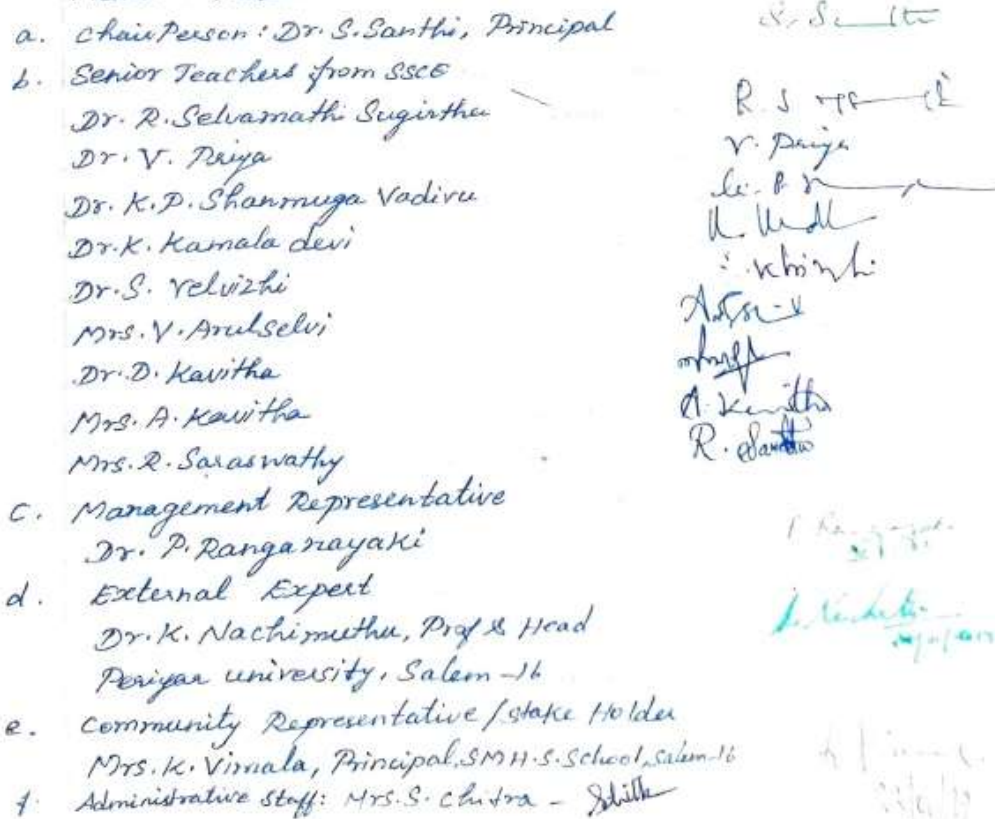 a. Chair Person : Dr. S. Santhi, Principal
b. Senior Teachers from SSCE
Dr. R. Selvamathi Sugirtha R. S
Dr. V. Priya V. Priya
Dr. K.P. Shanmuga Vadivu
Dr. K. Kamala devi
Dr. S. Velvizhi
Mrs. V. Arulselvi
Dr. D. Kavitha
Mrs. A. Kavitha A. Kavitha
Mrs. R. Saraswathy R.
C. Management Representative
Dr. P. Ranganayaki
d. External Expert
Dr. K. Nachimuthu, Prof & Head
Periyar university, Salem -16
e. Community Representative / Stake Holder
Mrs. K. Vimala, Principal, SMH.S.School, Salem-16
f. Administrative Staff: Mrs. S. Chitra -